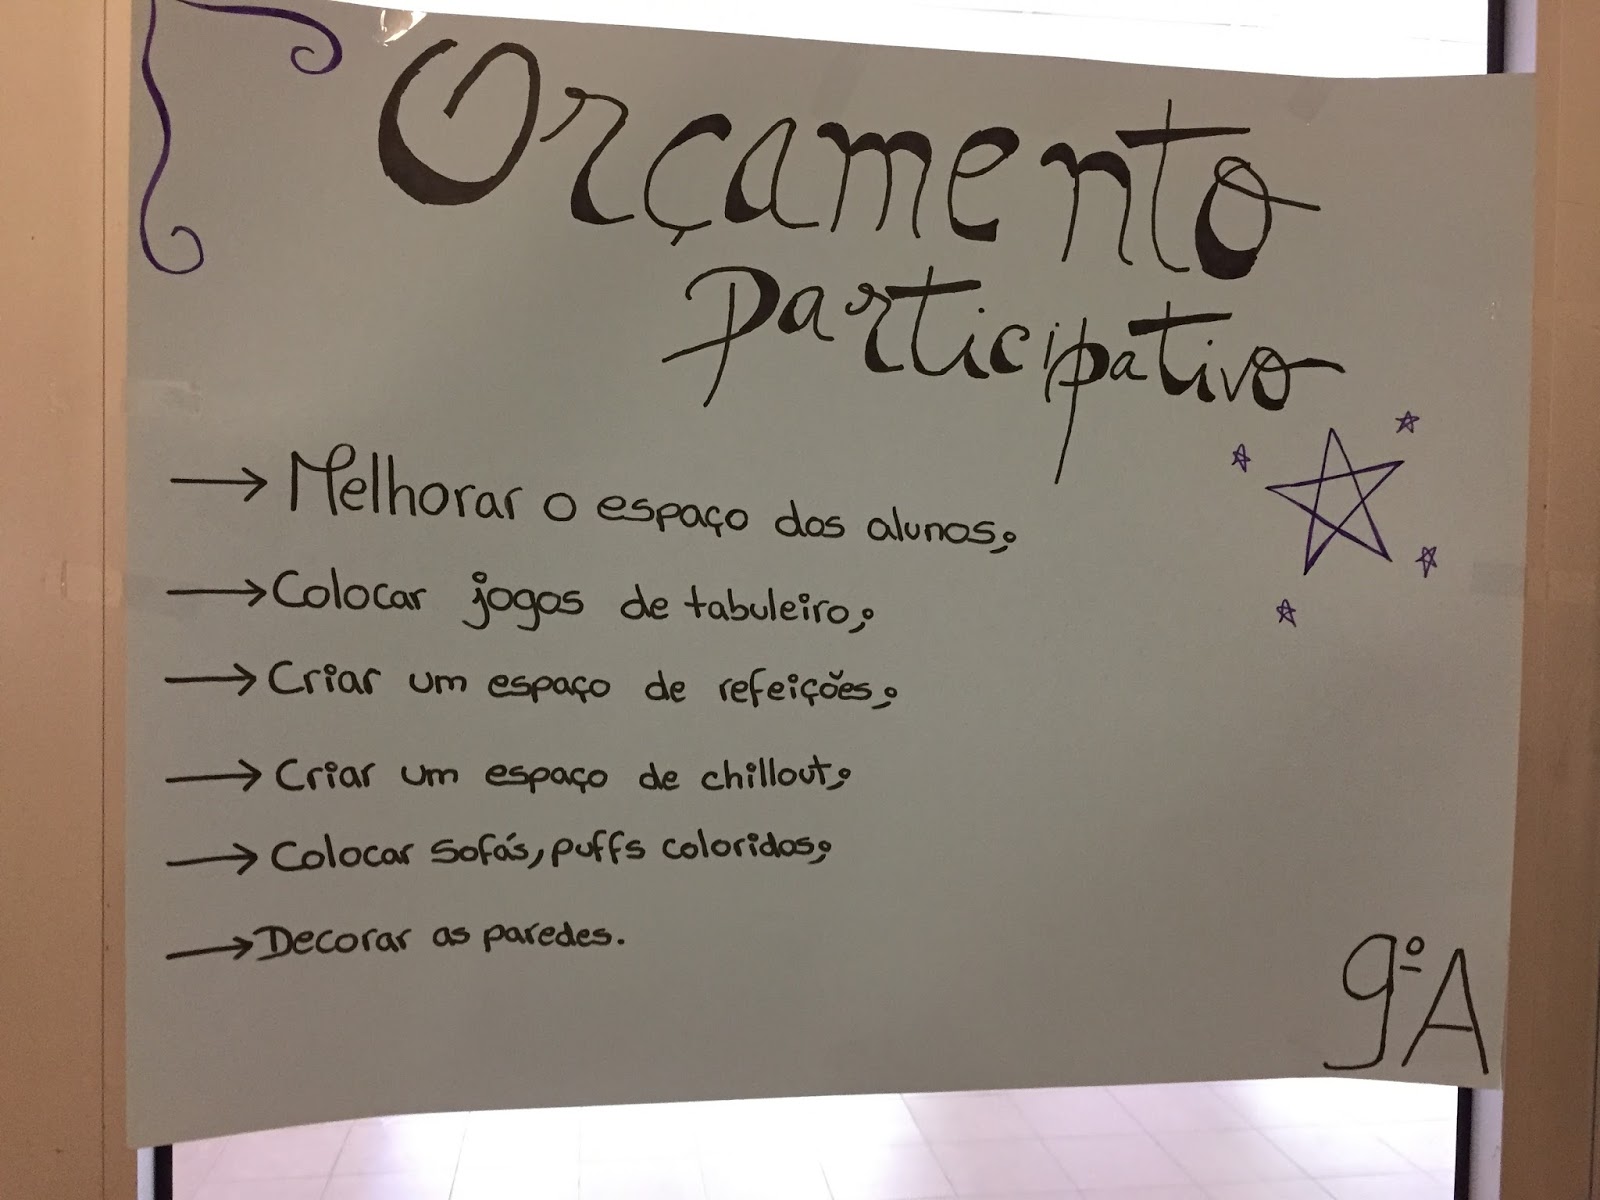 Orçamento
Participativo
→ Melhorar o espaço dos alunos;
→ Colocar jogos de tabuleiro;
→ Criar um espaço de refeições;
→ Criar um espaço de chillout;
→ Colocar sofás, puffs coloridos;
→ Decorar as paredes.
9ºA